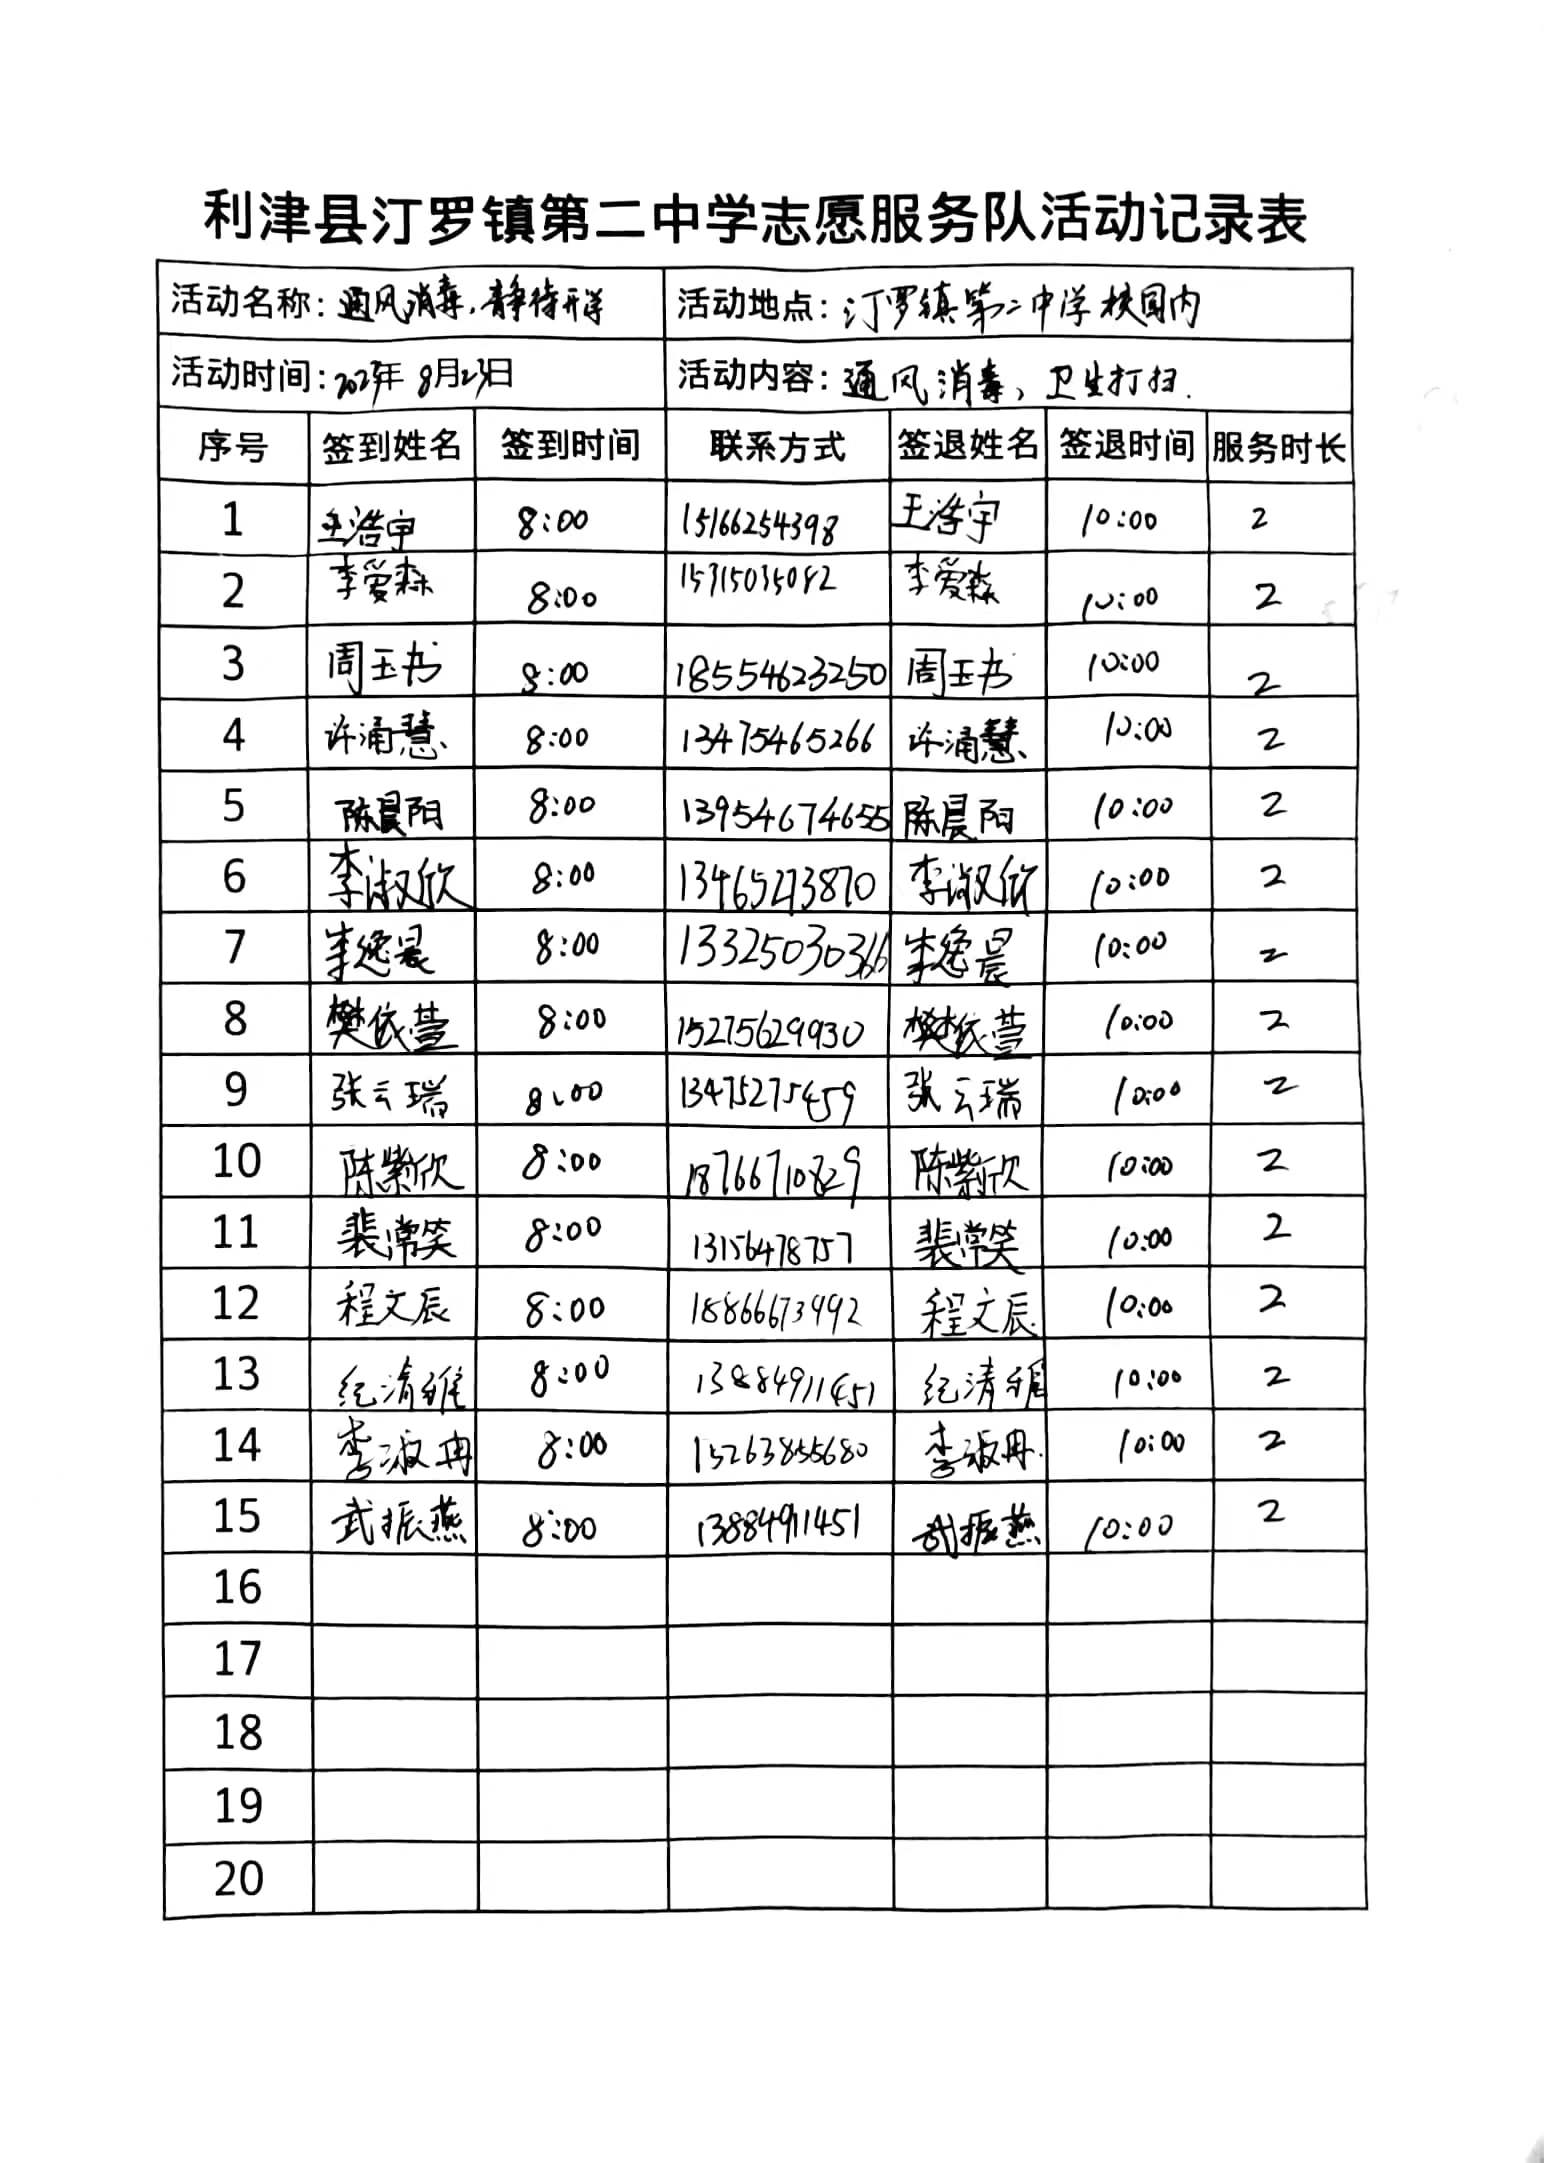 利津县汀罗镇第二中学志愿服务队活动记录表
活动名称：通风消毒，静待开学 活动地点：汀罗镇第二中学校园内
活动时间：2023年8月23日 活动内容：通风消毒、卫生打扫.
序号 签到姓名 签到时间 联系方式 签退姓名 签退时间 服务时长
1 王浩宇 8:00 15166254398 王浩宇 10:00 2
2 李爱森 8:00 15315035082 李爱森 10:00 2
3 周玉书 8:00 18554623250 周玉书 10:00 2
4 许涌慧 8:00 13475465266 许涌慧 10:00 2
5 陈晨阳 8:00 13954674655 陈晨阳 10:00 2
6 李淑欣 8:00 13465273870 李淑欣 10:00 2
7 8:00 13325030366 10:00 2
8 樊依萱 8:00 15275629930 樊依萱 10:00 2
9 张云瑞 8:00 13475275459 张云瑞 10:00 2
10 陈紫欣 8:00 18766710829 陈紫欣 10:00 2
11 裴常笑 8:00 13156478757 裴常笑 10:00 2
12 程文辰 8:00 18866673992 程文辰 10:00 2
13 纪清雅 8:00 13884911451 纪清雅 10:00 2
14 李淑冉 8:00 15263855680 李淑冉. 10:00 2
15 武振燕 8:00 13884911451 武振燕 10:00 2
16
17
18
19
20